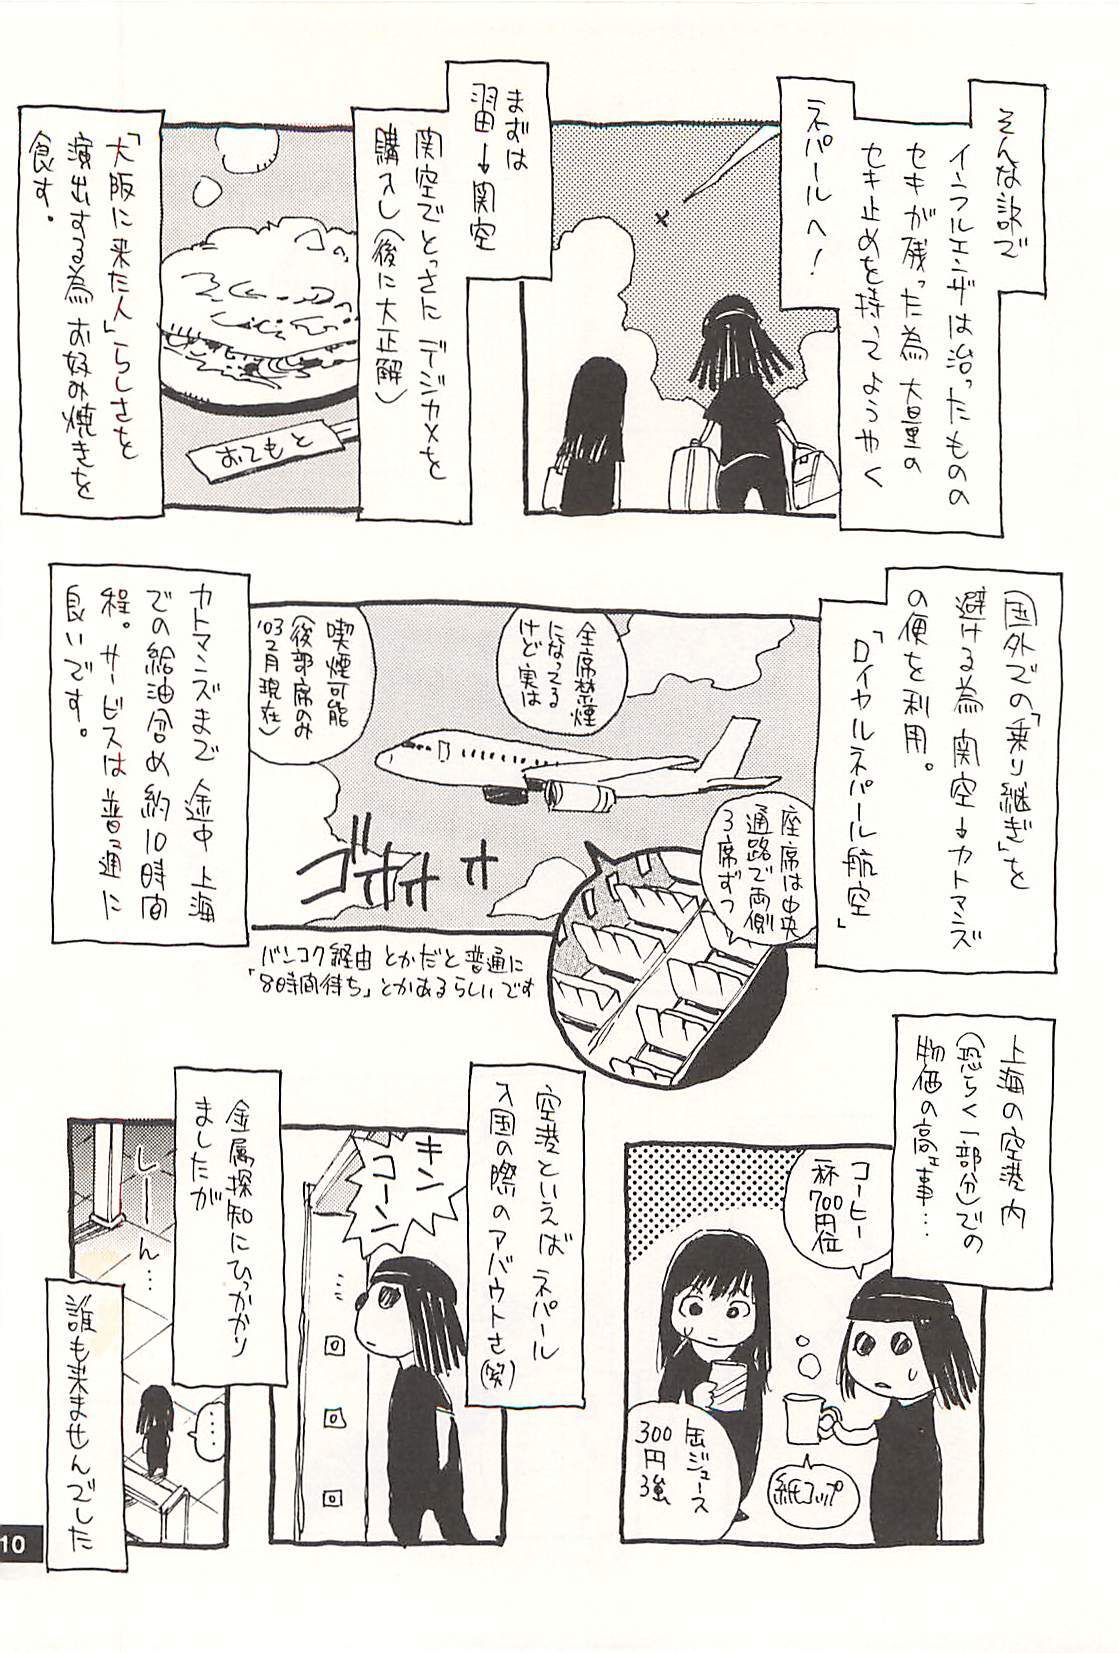 そんな訳で
インフルエンザは治ったものの
セキが残った為 大量の
セキ止めを持ってようやく
ネパールへ!
まずは
羽田→関空
関空でとっさに デジカメを
購入し(後に大正解)
「大阪に来た人」らしさを
演出する為 お好み焼きを
食す。
おてもと
国外での「乗り継ぎ」を
避ける為 関空→カトマンズ
の便を利用。
「ロイヤルネパール航空」
座席は中央
通路で両側
3席ずつ
全席禁煙
になってる
けど実は
喫煙可能
(後部席のみ
'03 2月現在)
ゴォォォ オ
カトマンズまで 途中 上海
での給油含め 約10時間
程。サービスは 普通に
良いです。
バンコク経由 とかだと 普通に
「8時間待ち」とかあるらしいです
上海の空港内
(恐らく一部分)での
物価の高さ事…
コーヒー
一杯700円位
紙コップ
缶ジュース
300円強
空港といえば ネパール
入国の際のアバウトさ(笑)
キン
コーン
金属探知にひっかかり
ましたが
しーーん…
……
誰も来ませんでした
10